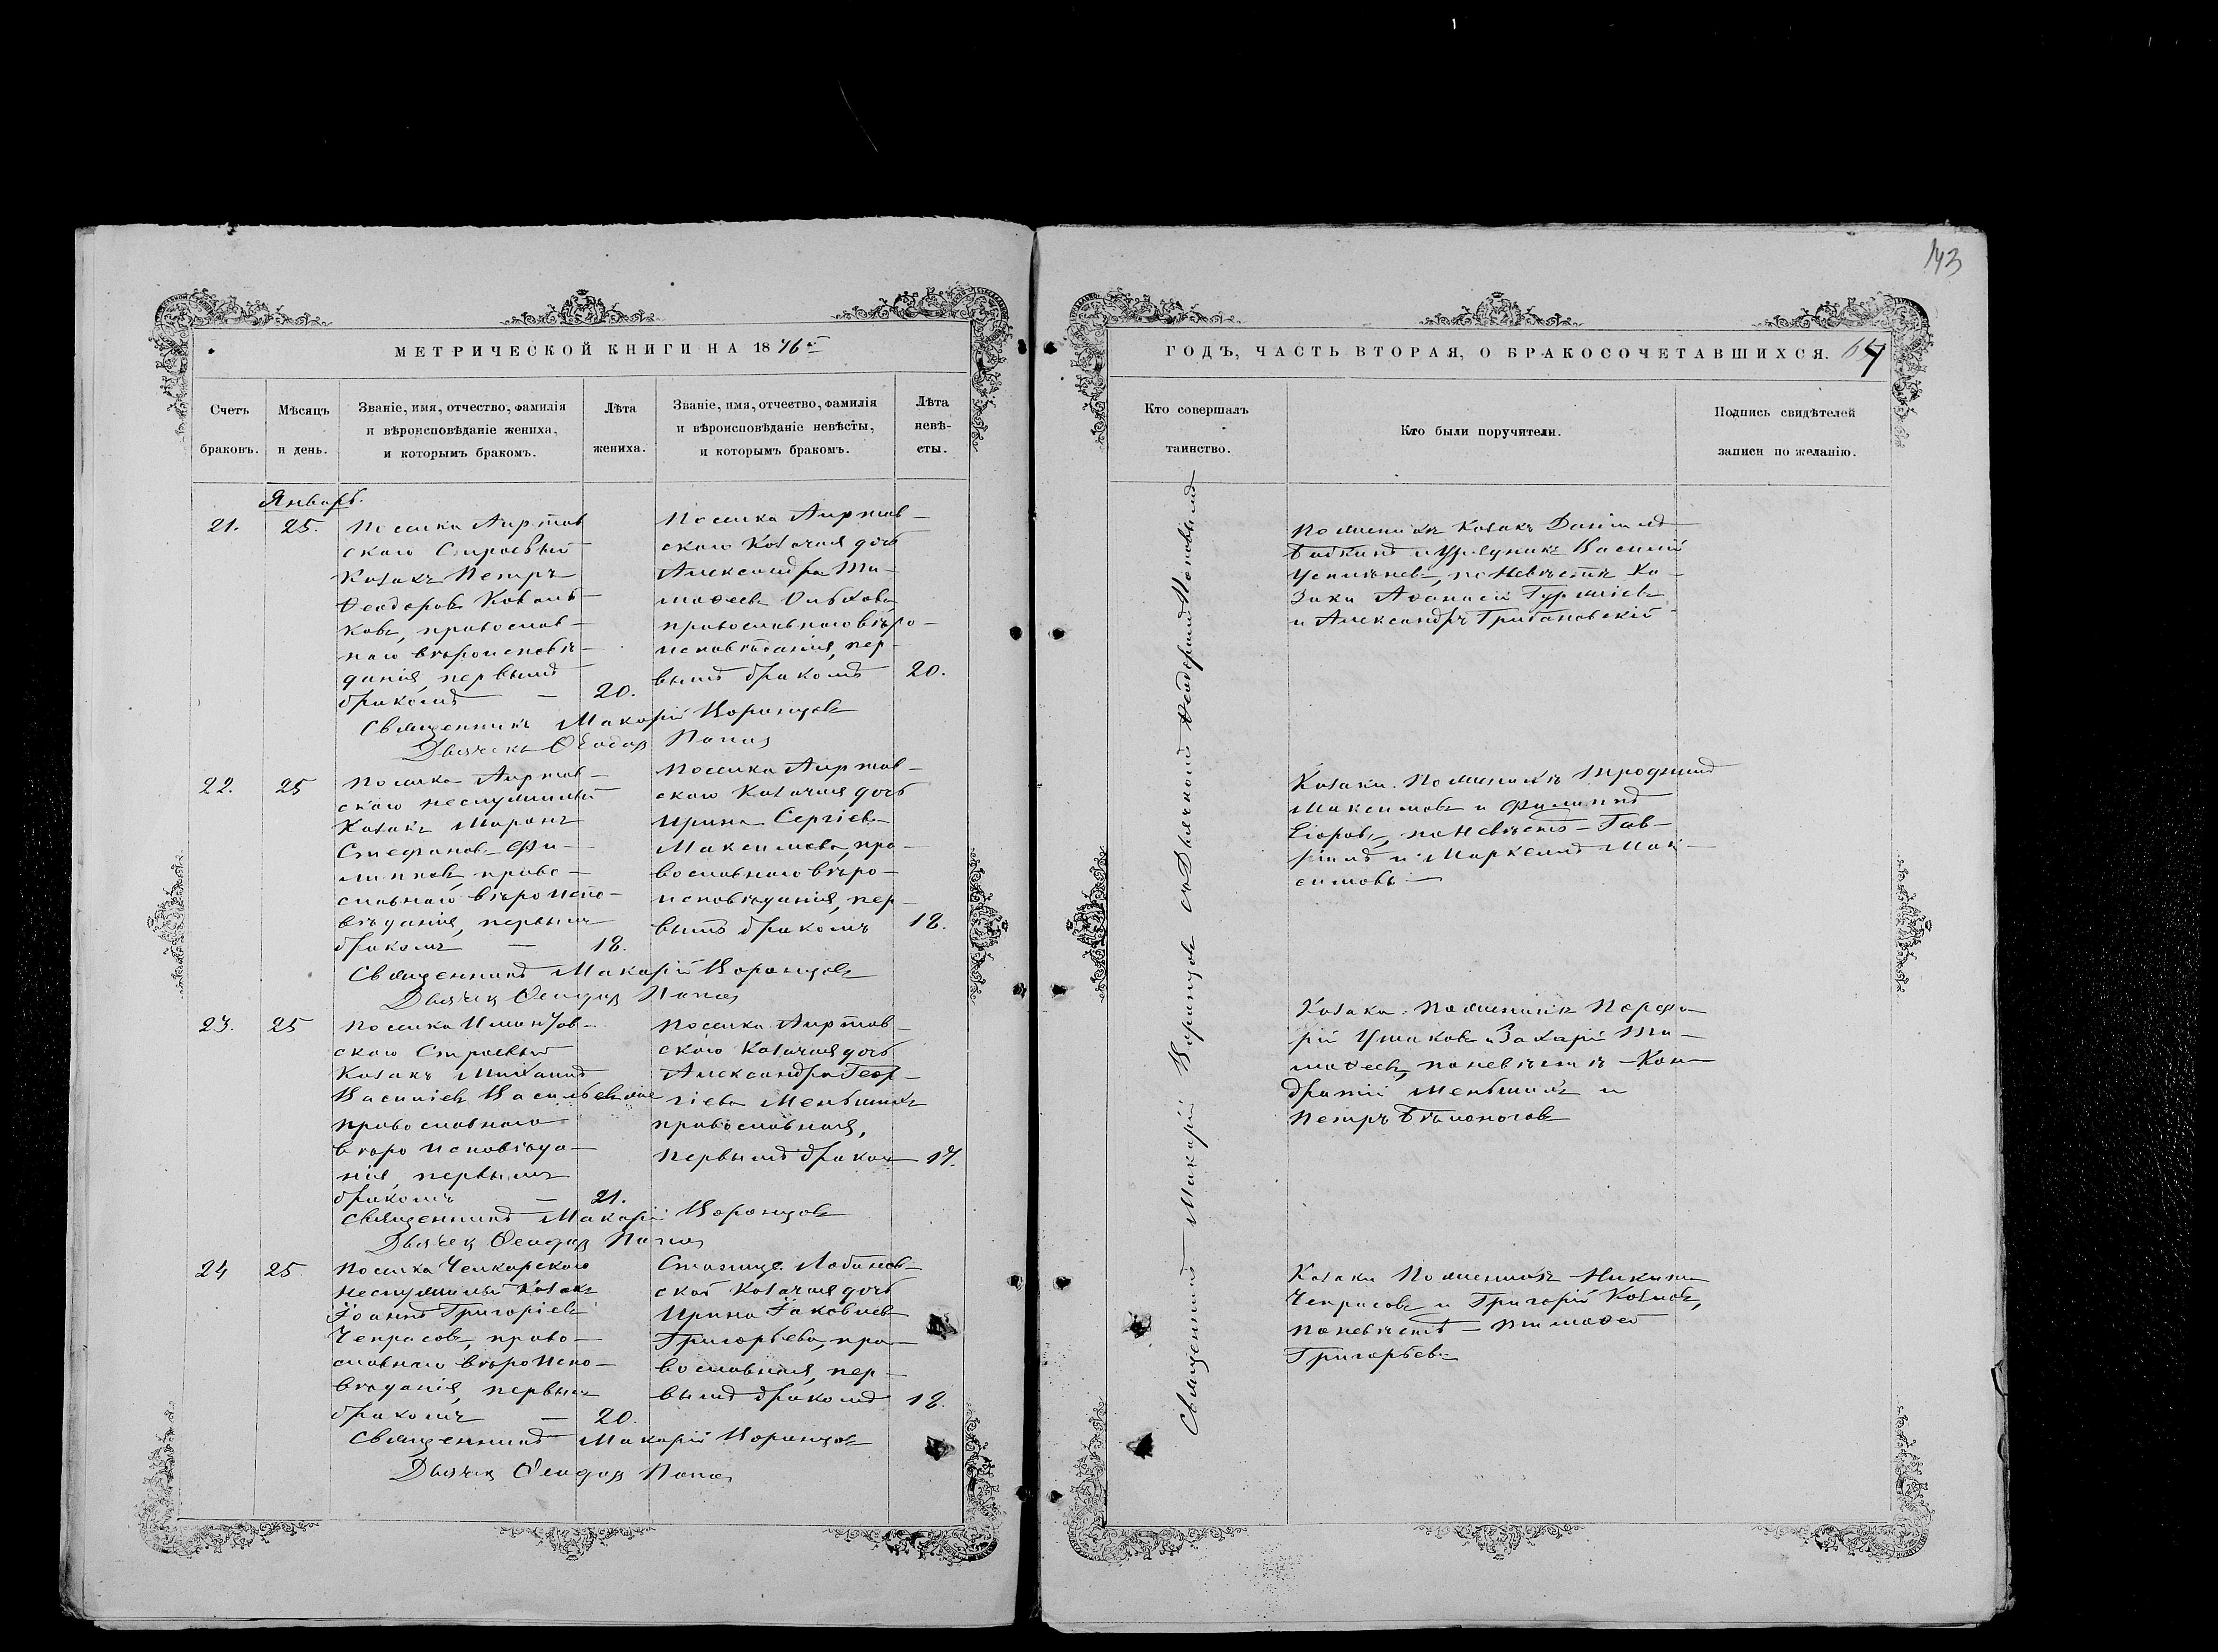 143
МЕТРИЧЕСКОЙ КНИГИ НА 1876й
Счетъ браковъ.
Мѣсяцъ и день.
Званіе, имя, отчество, фамилія и вѣроисповѣданіе жениха, и которымъ бракомъ.
Лѣта жениха.
Званіе, имя, отчество, фамилія и вѣроисповѣданіе невѣсты, и которымъ бракомъ.
Лѣта невѣсты.
Январь.
21.
25.
Поселка Аиртав
скаго Строевый
Козакъ Петръ
Ѳеодоровъ Коваль-
ковъ, православ-
наго вѣроисповѣ-
данія, первымъ
бракомъ —
20.
Поселка Аиртав-
скаго Козачья дочь
Александра Ти-
моѳеева Ольхова
православнаго вѣро-
исповѣданія, пер-
вымъ бракомъ
20.
Священникъ Макарій Воронцовъ
Дьячекъ Ѳеодоръ Попов
22.
25
Поселка Аиртав-
скаго неслужилый
Козакъ Миронъ
Стефановъ Фи-
липповъ, право-
славнаго вѣроиспо-
вѣданія, первымъ
бракомъ —
18.
Поселка Аиртав-
скаго Козачья дочь
Ирина Сергіева
Максимова, пра-
вославнаго вѣро-
исповѣданія, пер-
вымъ бракомъ
18.
Священникъ Макарій Воронцовъ
Дьячек Ѳеодор Попов
23.
25
Поселка Имантав-
скаго Строевый
Козакъ Михаилъ
Василіевъ
православнаго
вѣроисповѣда-
нія, первымъ
бракомъ —
21.
Поселка Аиртав-
скаго Козачья дочь
Александра Геор-
гіева Меньшихъ
православная,
первымъ бракомъ
17.
Священникъ Макарій Воронцовъ
Дьячек Ѳеодор Попов
24
25
Поселка Челкарскаго
неслужилый Козакъ
Іоаннъ Григоріевъ
Чепрасовъ, право-
славнаго вѣроиспо-
вѣданія, первымъ
бракомъ —
20.
Станицы Лобанов-
ской Козачья дочь
Ирина Іаковлева
Григорьева, пра-
вославная, пер-
вымъ бракомъ
18.
Священникъ Макарій Воронцовъ
Дьячек Ѳеодор Попов
ГОДЪ, ЧАСТЬ ВТОРАЯ, О БРАКОСОЧЕТАВШИХСЯ.
Кто совершалъ таинство.
Кто были поручители.
Подпись свидѣтелей записи по желанію.
Священникъ Макарій Воронцовъ съ Дьячкомъ Ѳеодоромъ Поповымъ
По женихѣ Козакъ Даніилъ
Бабкинъ и Урядникъ Василій
по невѣстѣ Ко-
заки Аѳанасій
и Александръ Грибановскій
Козаки. По женихѣ Трофимъ
Максимовъ и Филиппъ
Егоровъ, по невѣстѣ - Гав-
ріилъ и Маркеллъ Мак-
симовы —
Козаки. По женихѣ Порфи-
рій Ушаковъ и Захарій Ти-
моѳеевъ, по невѣстѣ - Кон-
дратій Меньшихъ и
Петръ Бѣлоноговъ
Козаки По женихѣ Никита
Чепрасовъ и Григорій Козловъ,
по невѣстѣ - Тимоѳей
Григорьевъ